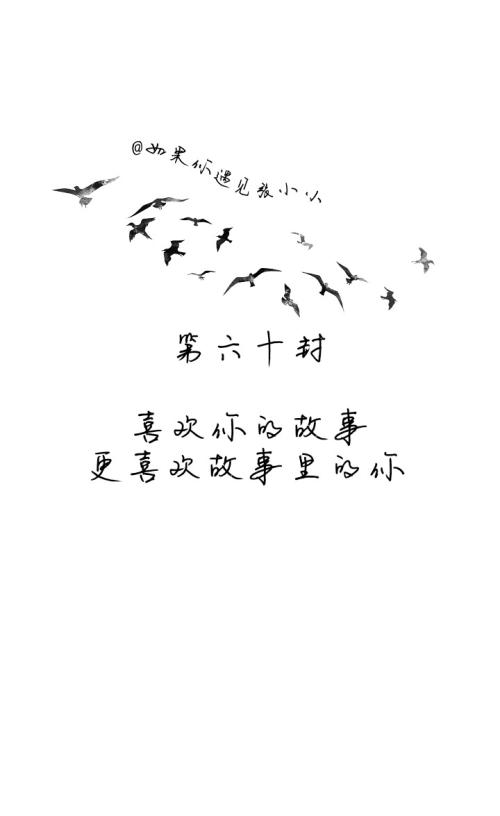 @如果你遇见张小小
第六十封
喜欢你的故事
更喜欢故事里的你